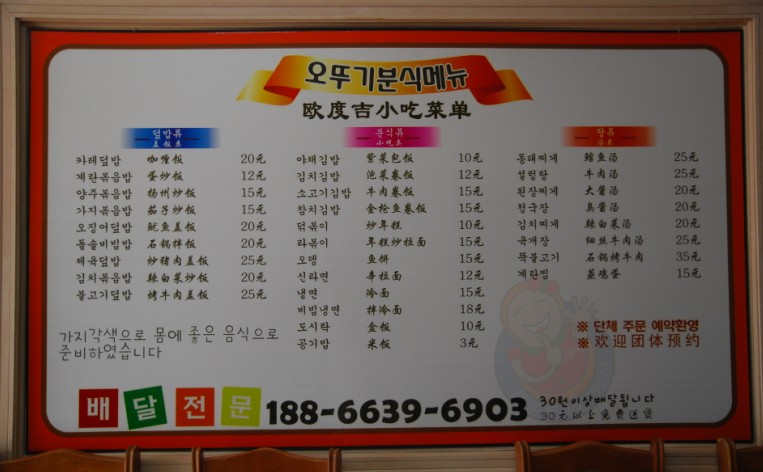 오뚜기분식메뉴
欧度吉小吃菜单
덮밥류
盖饭类
카레덮밥 咖喱饭 20元
계란볶음밥 蛋炒饭 12元
양주볶음밥 扬州炒饭 15元
가지볶음밥 茄子炒饭 15元
오징어덮밥 鱿鱼盖饭 20元
돌솥비빔밥 石锅拌饭 20元
제육덮밥 炒猪肉盖饭 25元
김치볶음밥 辣白菜炒饭 20元
불고기덮밥 烤牛肉盖饭 25元
분식류
小吃类
야채김밥 紫菜包饭 10元
김치김밥 泡菜卷饭 12元
소고기김밥 牛肉卷饭 15元
참치김밥 金枪鱼卷饭 15元
떡볶이 炒年糕 10元
라볶이 年糕炒拉面 15元
오뎅 鱼饼 15元
신라면 辛拉面 12元
냉면 冷面 15元
비빔냉면 拌冷面 18元
도시락 盒饭 10元
공기밥 米饭 3元
탕류
汤类
동태찌게 鳕鱼汤 25元
설렁탕 牛肉汤 25元
된장찌게 大酱汤 20元
청국장 臭酱汤 20元
김치찌게 辣白菜汤 20元
육개장 细丝牛肉汤 25元
뚝불고기 石锅烤牛肉 35元
계란찜 蒸鸡蛋 15元
가지각색으로 몸에 좋은 음식으로
준비하였습니다
※ 단체 주문 예약환영
※ 欢迎团体预约
배달전문 188-6639-6903
30원이상배달됩니다
30元以上免费送货